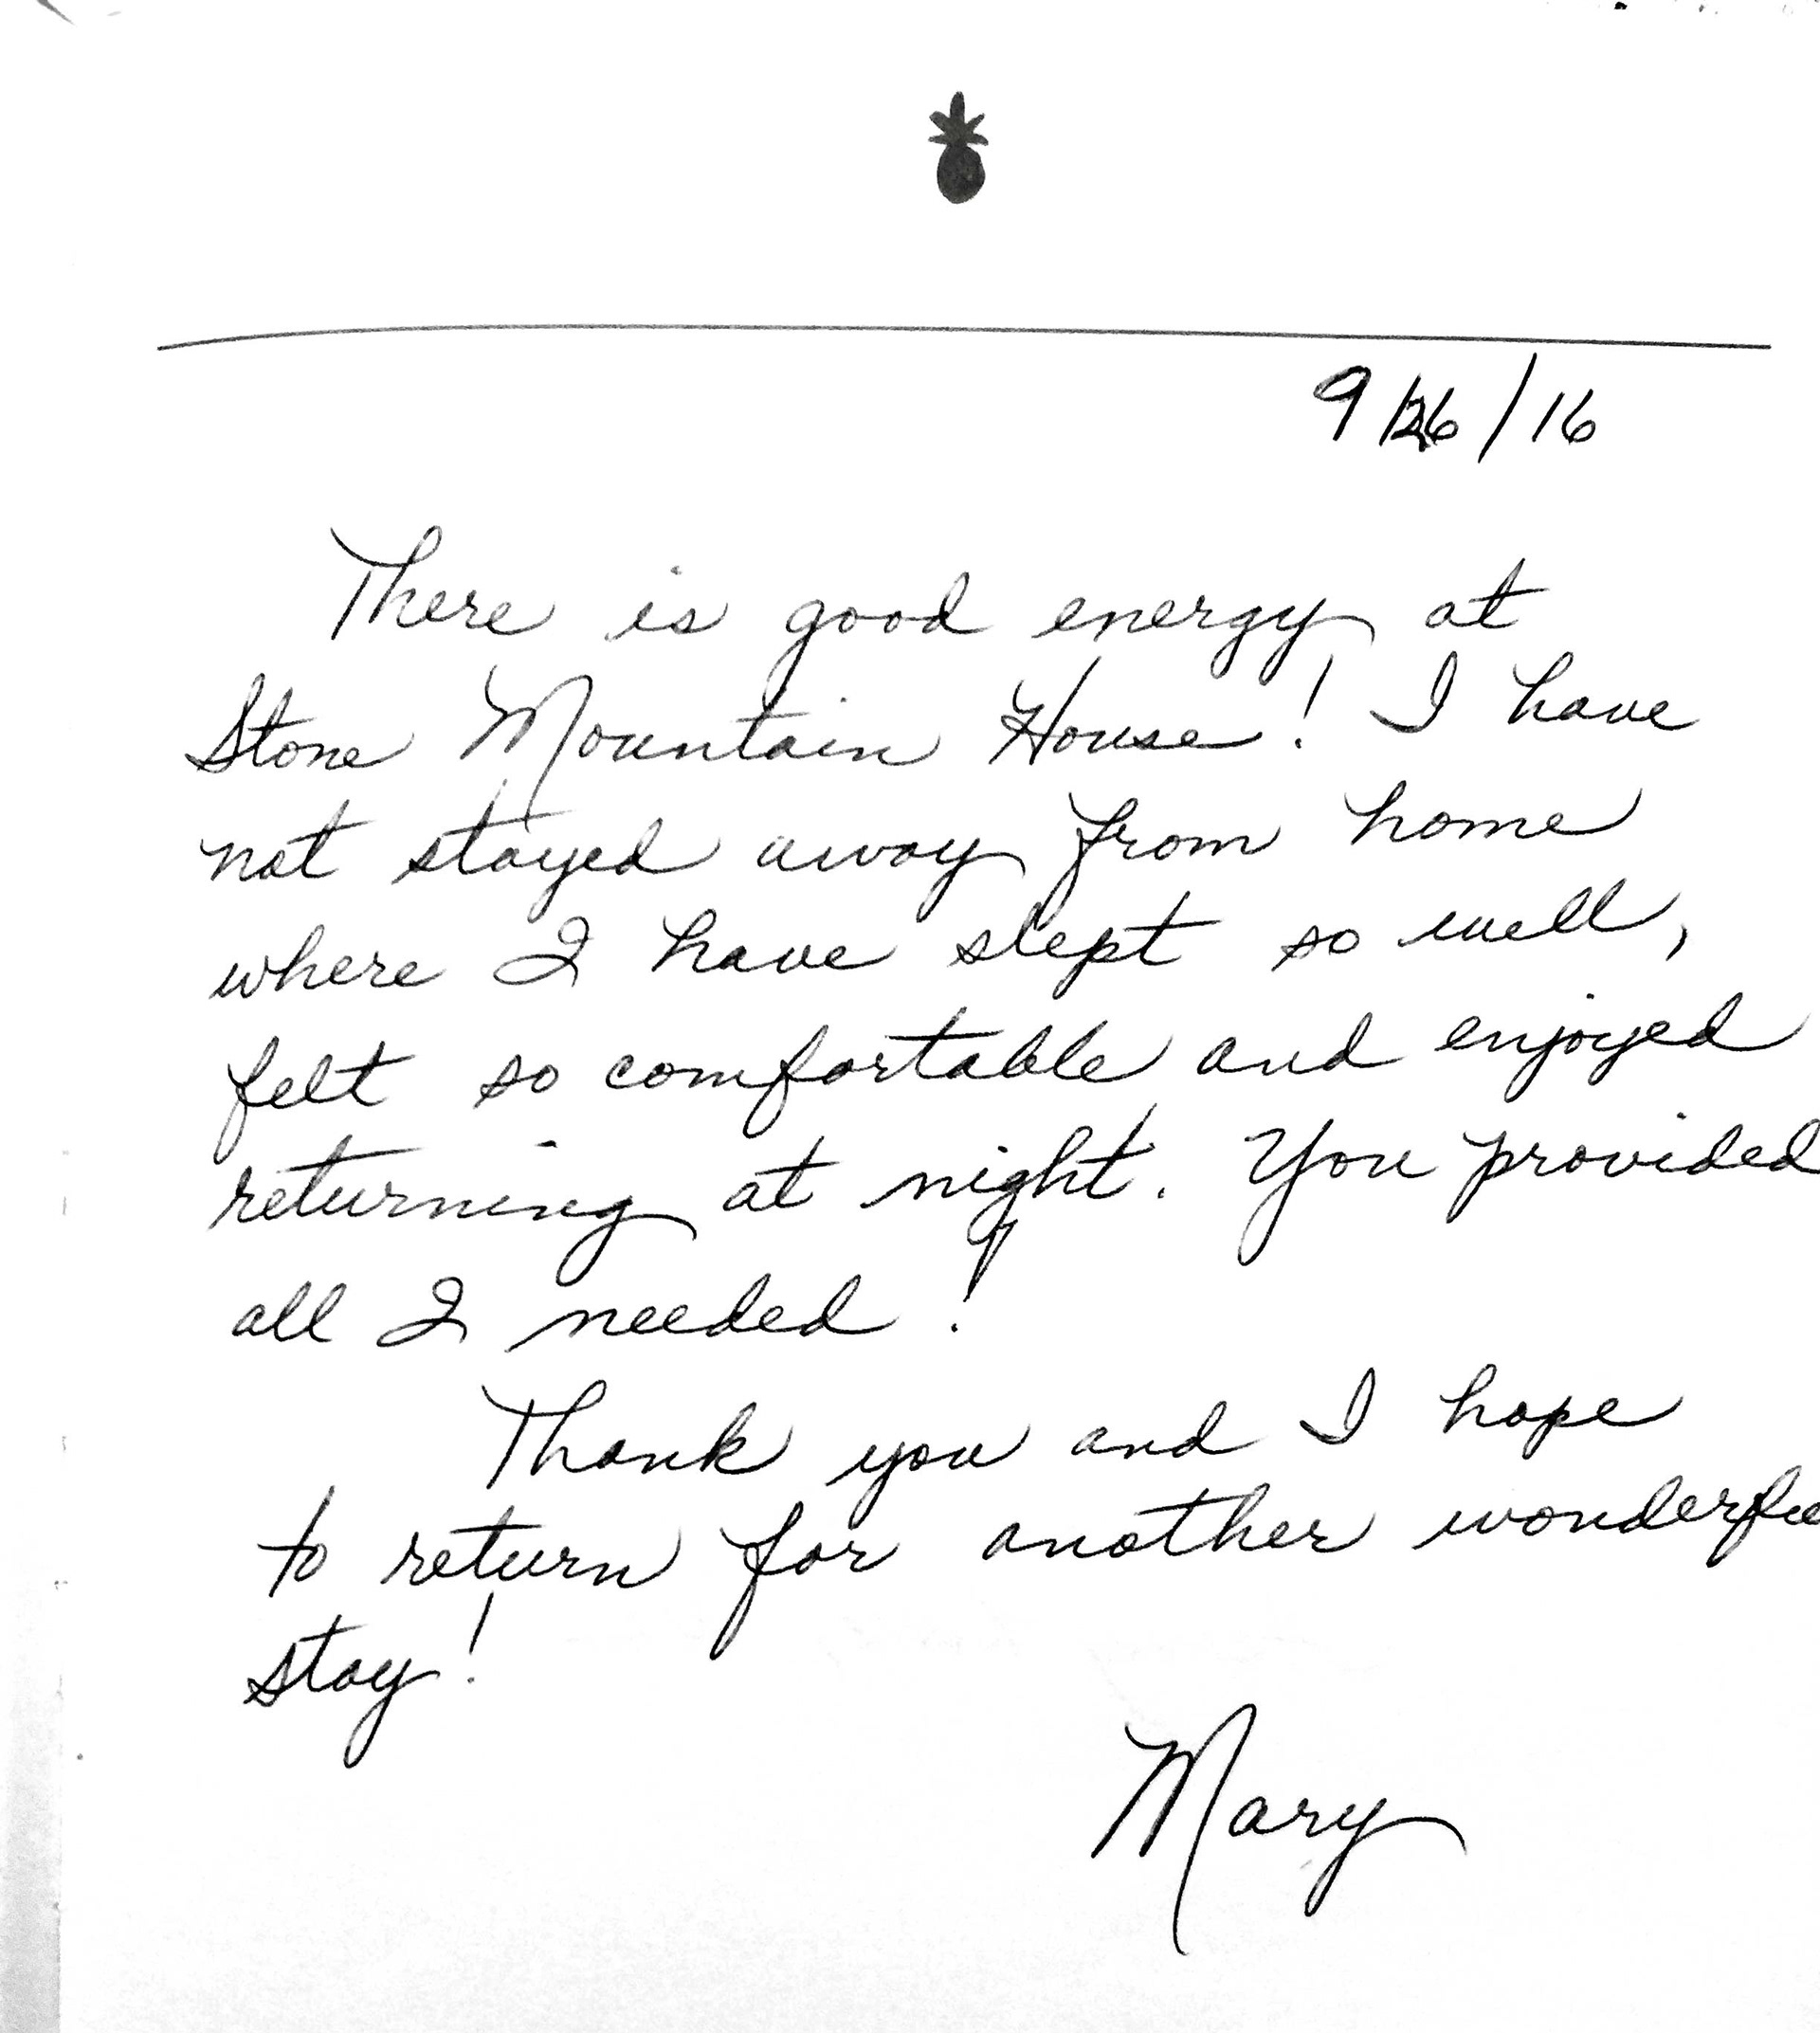 9/26/16
There is good energy at
Stone Mountain House! I have
not stayed away from home
where I have slept so well,
felt so comfortable and enjoyed
returning at night. You provided
all I needed!
Thank you and I hope
to return for another wonderfu
stay!
Mary